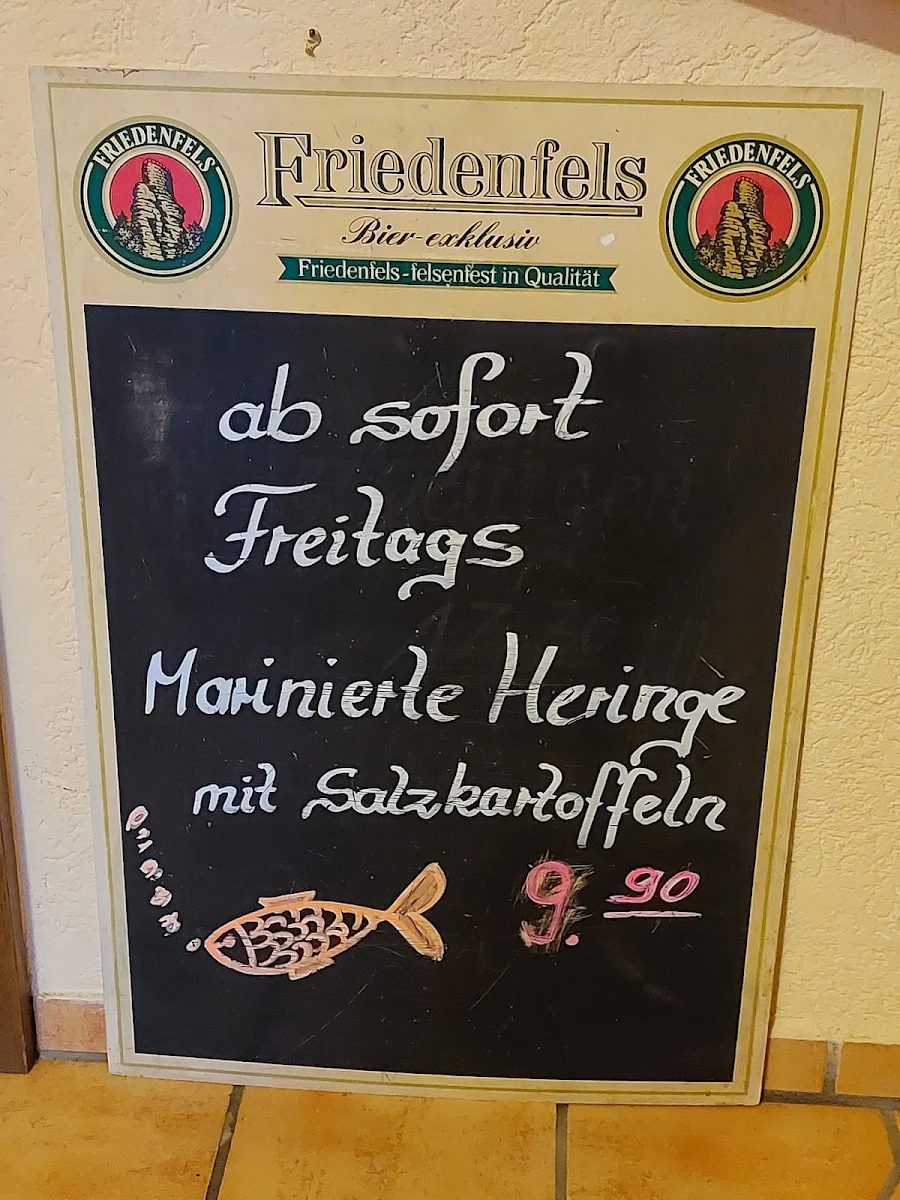 FRIEDENFELS
Friedenfels
FRIEDENFELS
Bier-exklusiv
Friedenfels-felsenfest in Qualität
ab sofort
Freitags
Marinierte Heringe
mit Salzkartoffeln
9.90